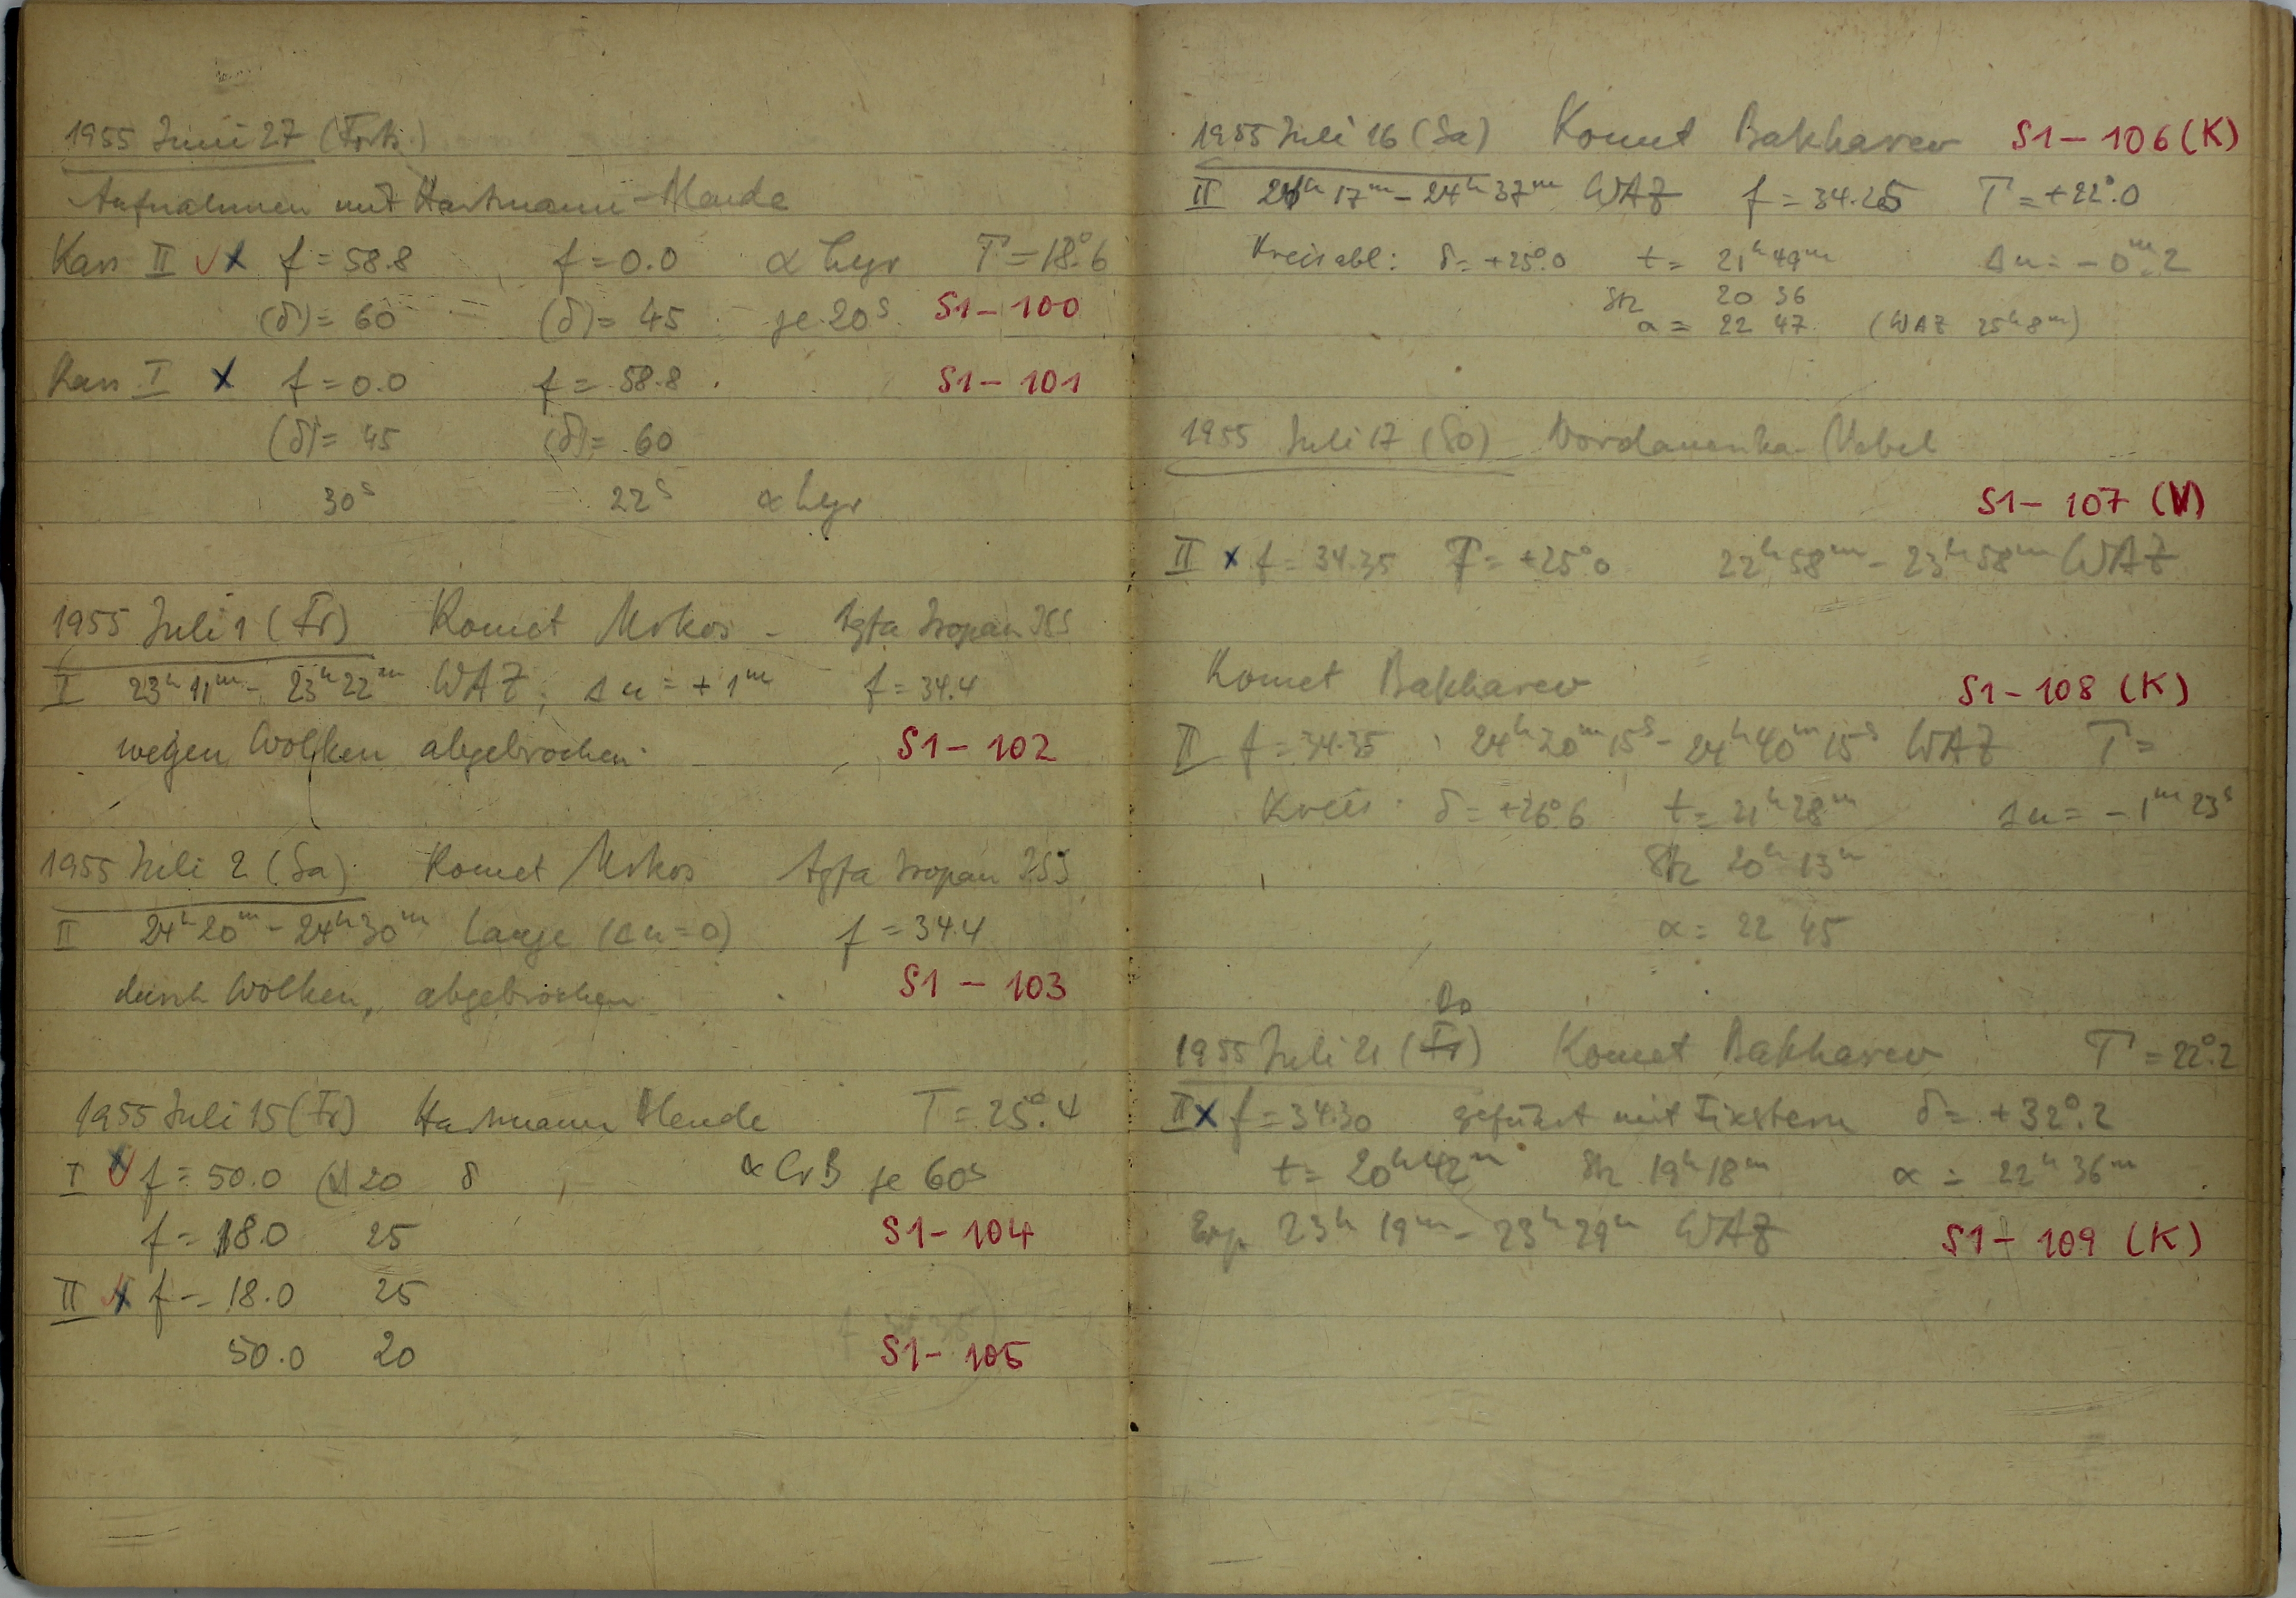 1955 Juni 27
Aufnahmen mit Hartmann-Blende
Kass II f = 58.8 f = 0.0 α Lyr T = 18°.6
(δ) = 60 (δ) = 45 je 20s S1 - 100
Kass I x f = 0.0 f = 58.8 S1 - 101
(δ) = 45 (δ) = 60
30s 22s α Lyr
1955 Juli 1 (Fr) Komet Mrkos - Agfa Isopan ISS
I 23h 11m - 23h 22m WAZ; Δu = +1m f = 34.4
wegen Wolken abgebrochen S1 - 102
1955 Juli 2 (Sa) Komet Mrkos Agfa Isopan ISS
II 24h 20m - 24h 30m Lange (Δu = 0) f = 34.4
durch Wolken, abgebrochen S1 - 103
1955 Juli 15 (Fr) Hartmann Blende T = 25°.4
I f = 50.0 20 δ α CrB je 60s
f = 18.0 25 S1 - 104
II x f = 18.0 25
50.0 20 S1 - 105
1955 Juli 16 (Sa) Komet Bakharev S1 - 106 (K)
II 24h 17m - 24h 37m WAZ f = 34.25 T = +22°.0
Kreisabl: δ = +25°.0 t = 21h 49m Δu = -0m.2
Stz 20 36
α = 22 47 (WAZ 25h 8m)
1955 Juli 17 (So) Nordamerika-Nebel
S1 - 107 (N)
II x f = 34.35 T = +25°0 22h 58m - 23h 58m WAZ
Komet Bakharev S1 - 108 (K)
II f = 34.35 24h 20m 15s - 24h 40m 15s WAZ T =
Kreis δ = +26°6 t = 21h 28m Δu = -1m 23s
Stz 20h 13m
α = 22 45
Do
1955 Juli 21 (Fr) Komet Bakharev T = 22°.2
II x f = 34.30 geführt mit Fixstern δ = +32°.2
t = 20h 42m Stz 19h 18m α = 22h 36m
Exp. 23h 19m - 23h 29m WAZ S1 - 109 (K)